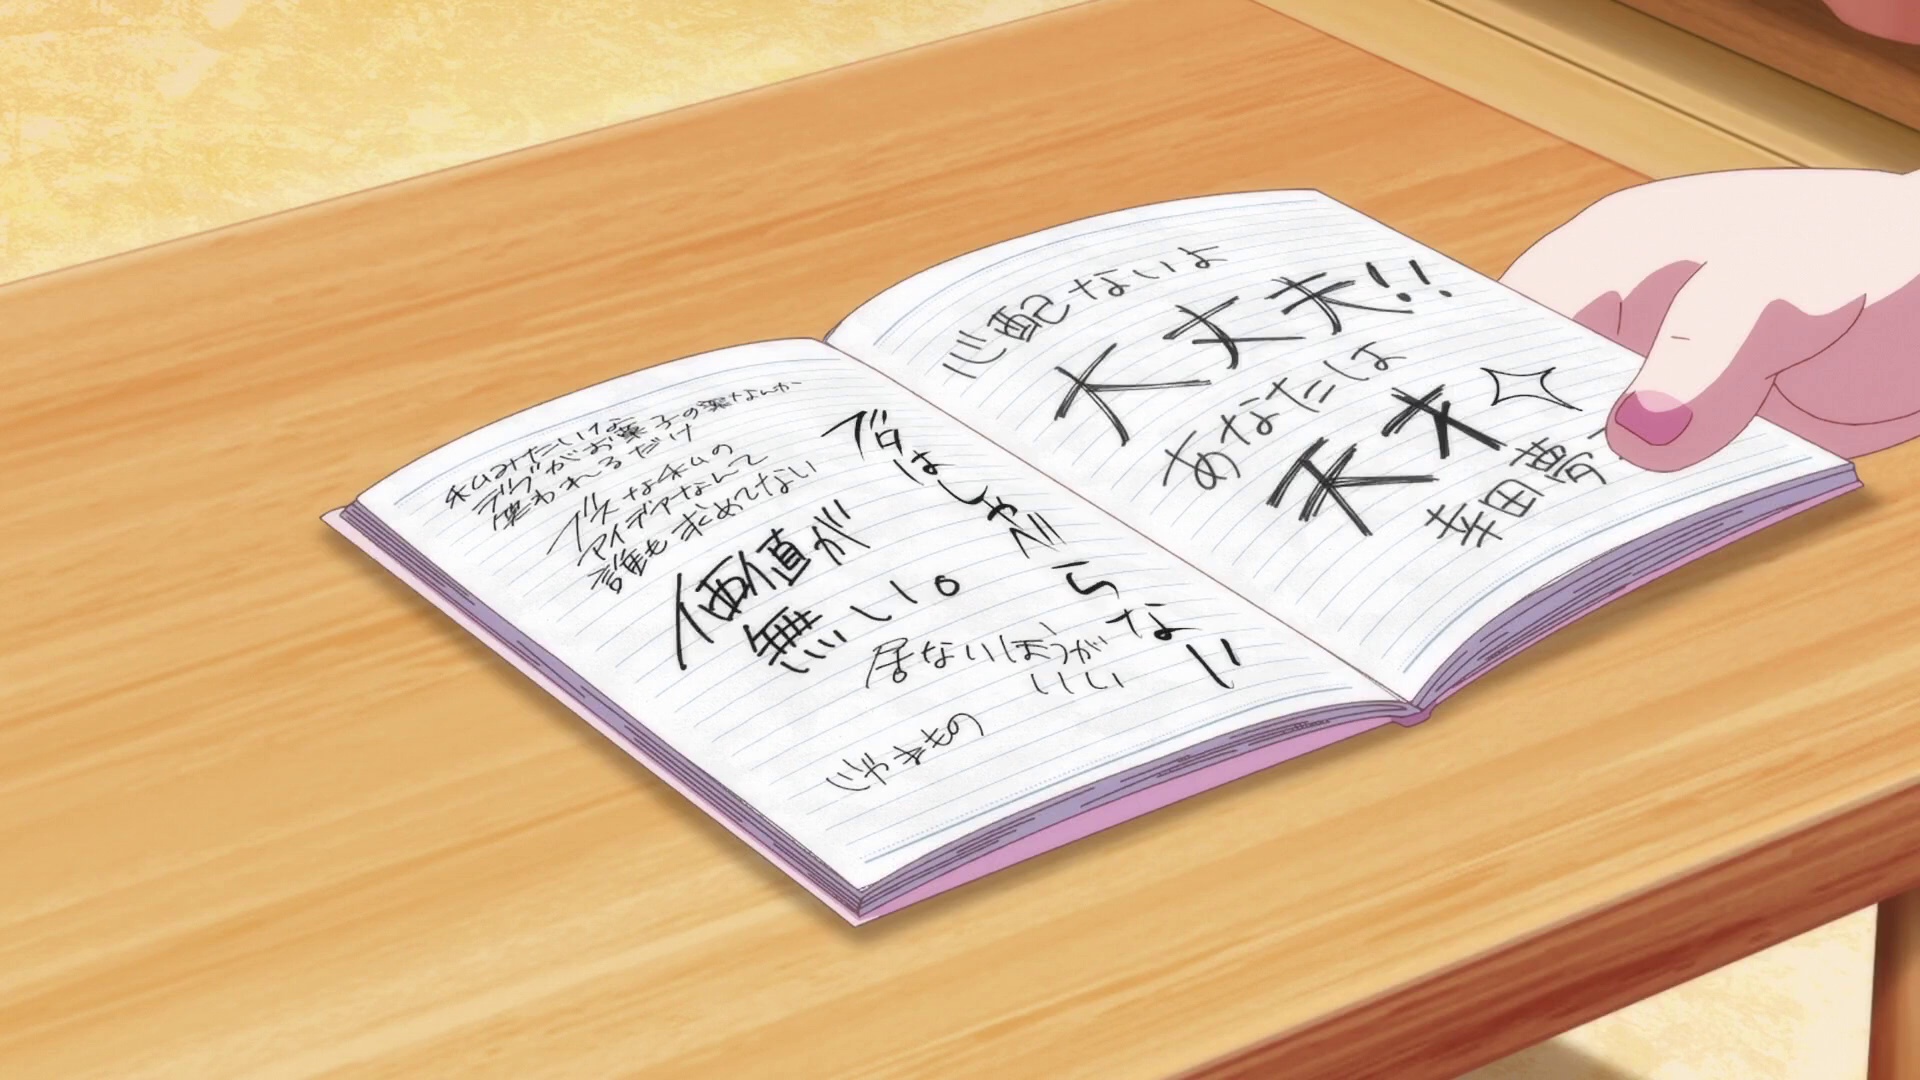 私みたいな
デブがお菓子の薬なんか
笑われるだけ
ブスな私の
アイデアなんて
誰も求めてない
価値が
無い。
居ないほうが
いい
じゃまもの
デブはしゃべらない
心配ないよ
大丈夫!!
あなたは
天才
幸田夢